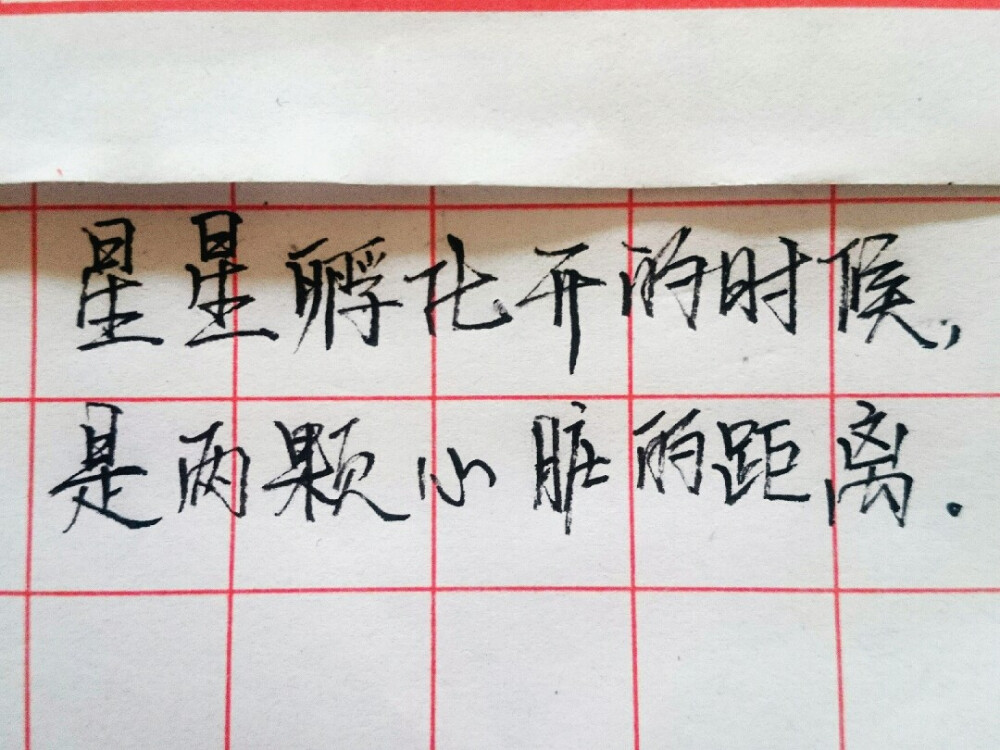 星星孵化开的时候,
是两颗心脏的距离.